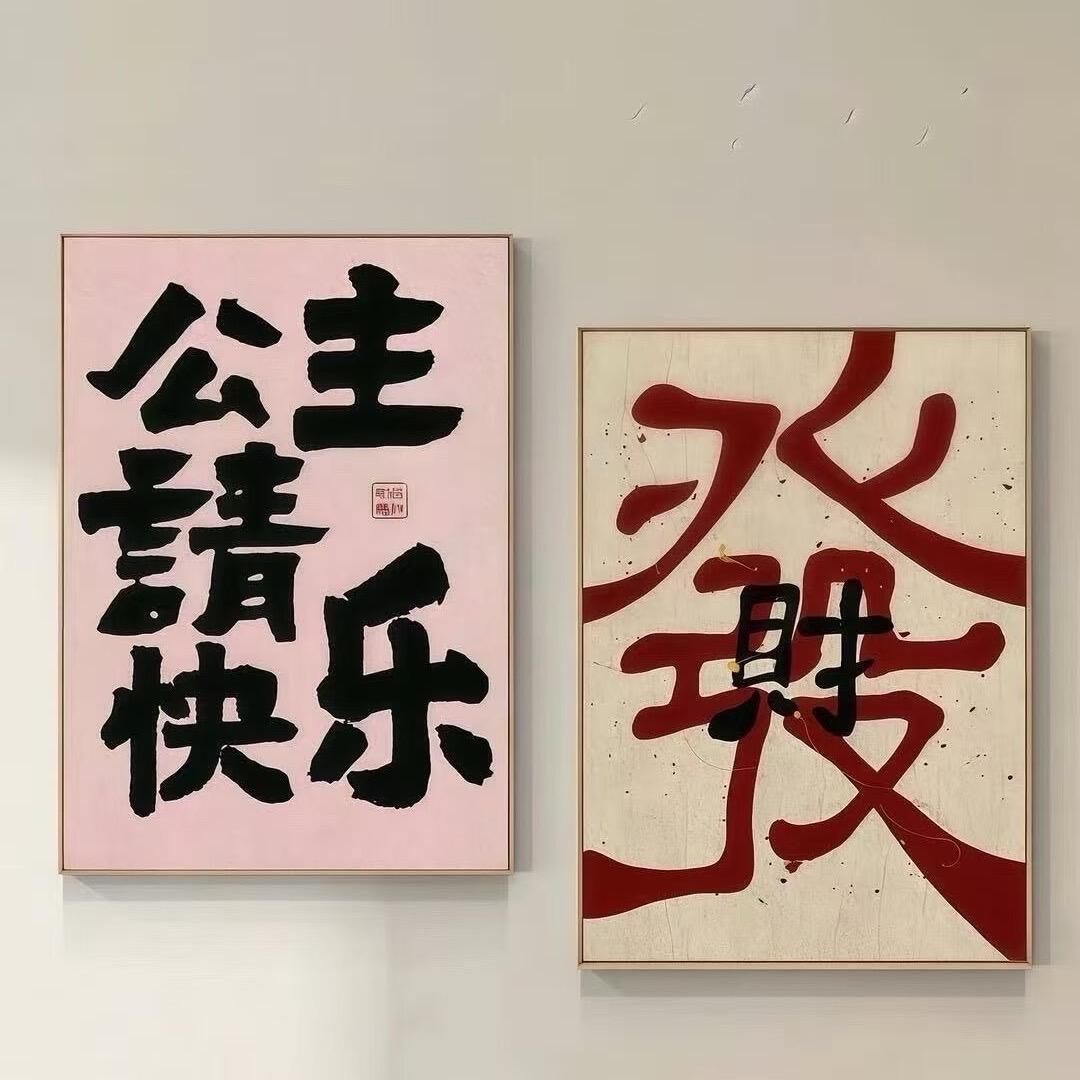 公主
請
快乐
發
財